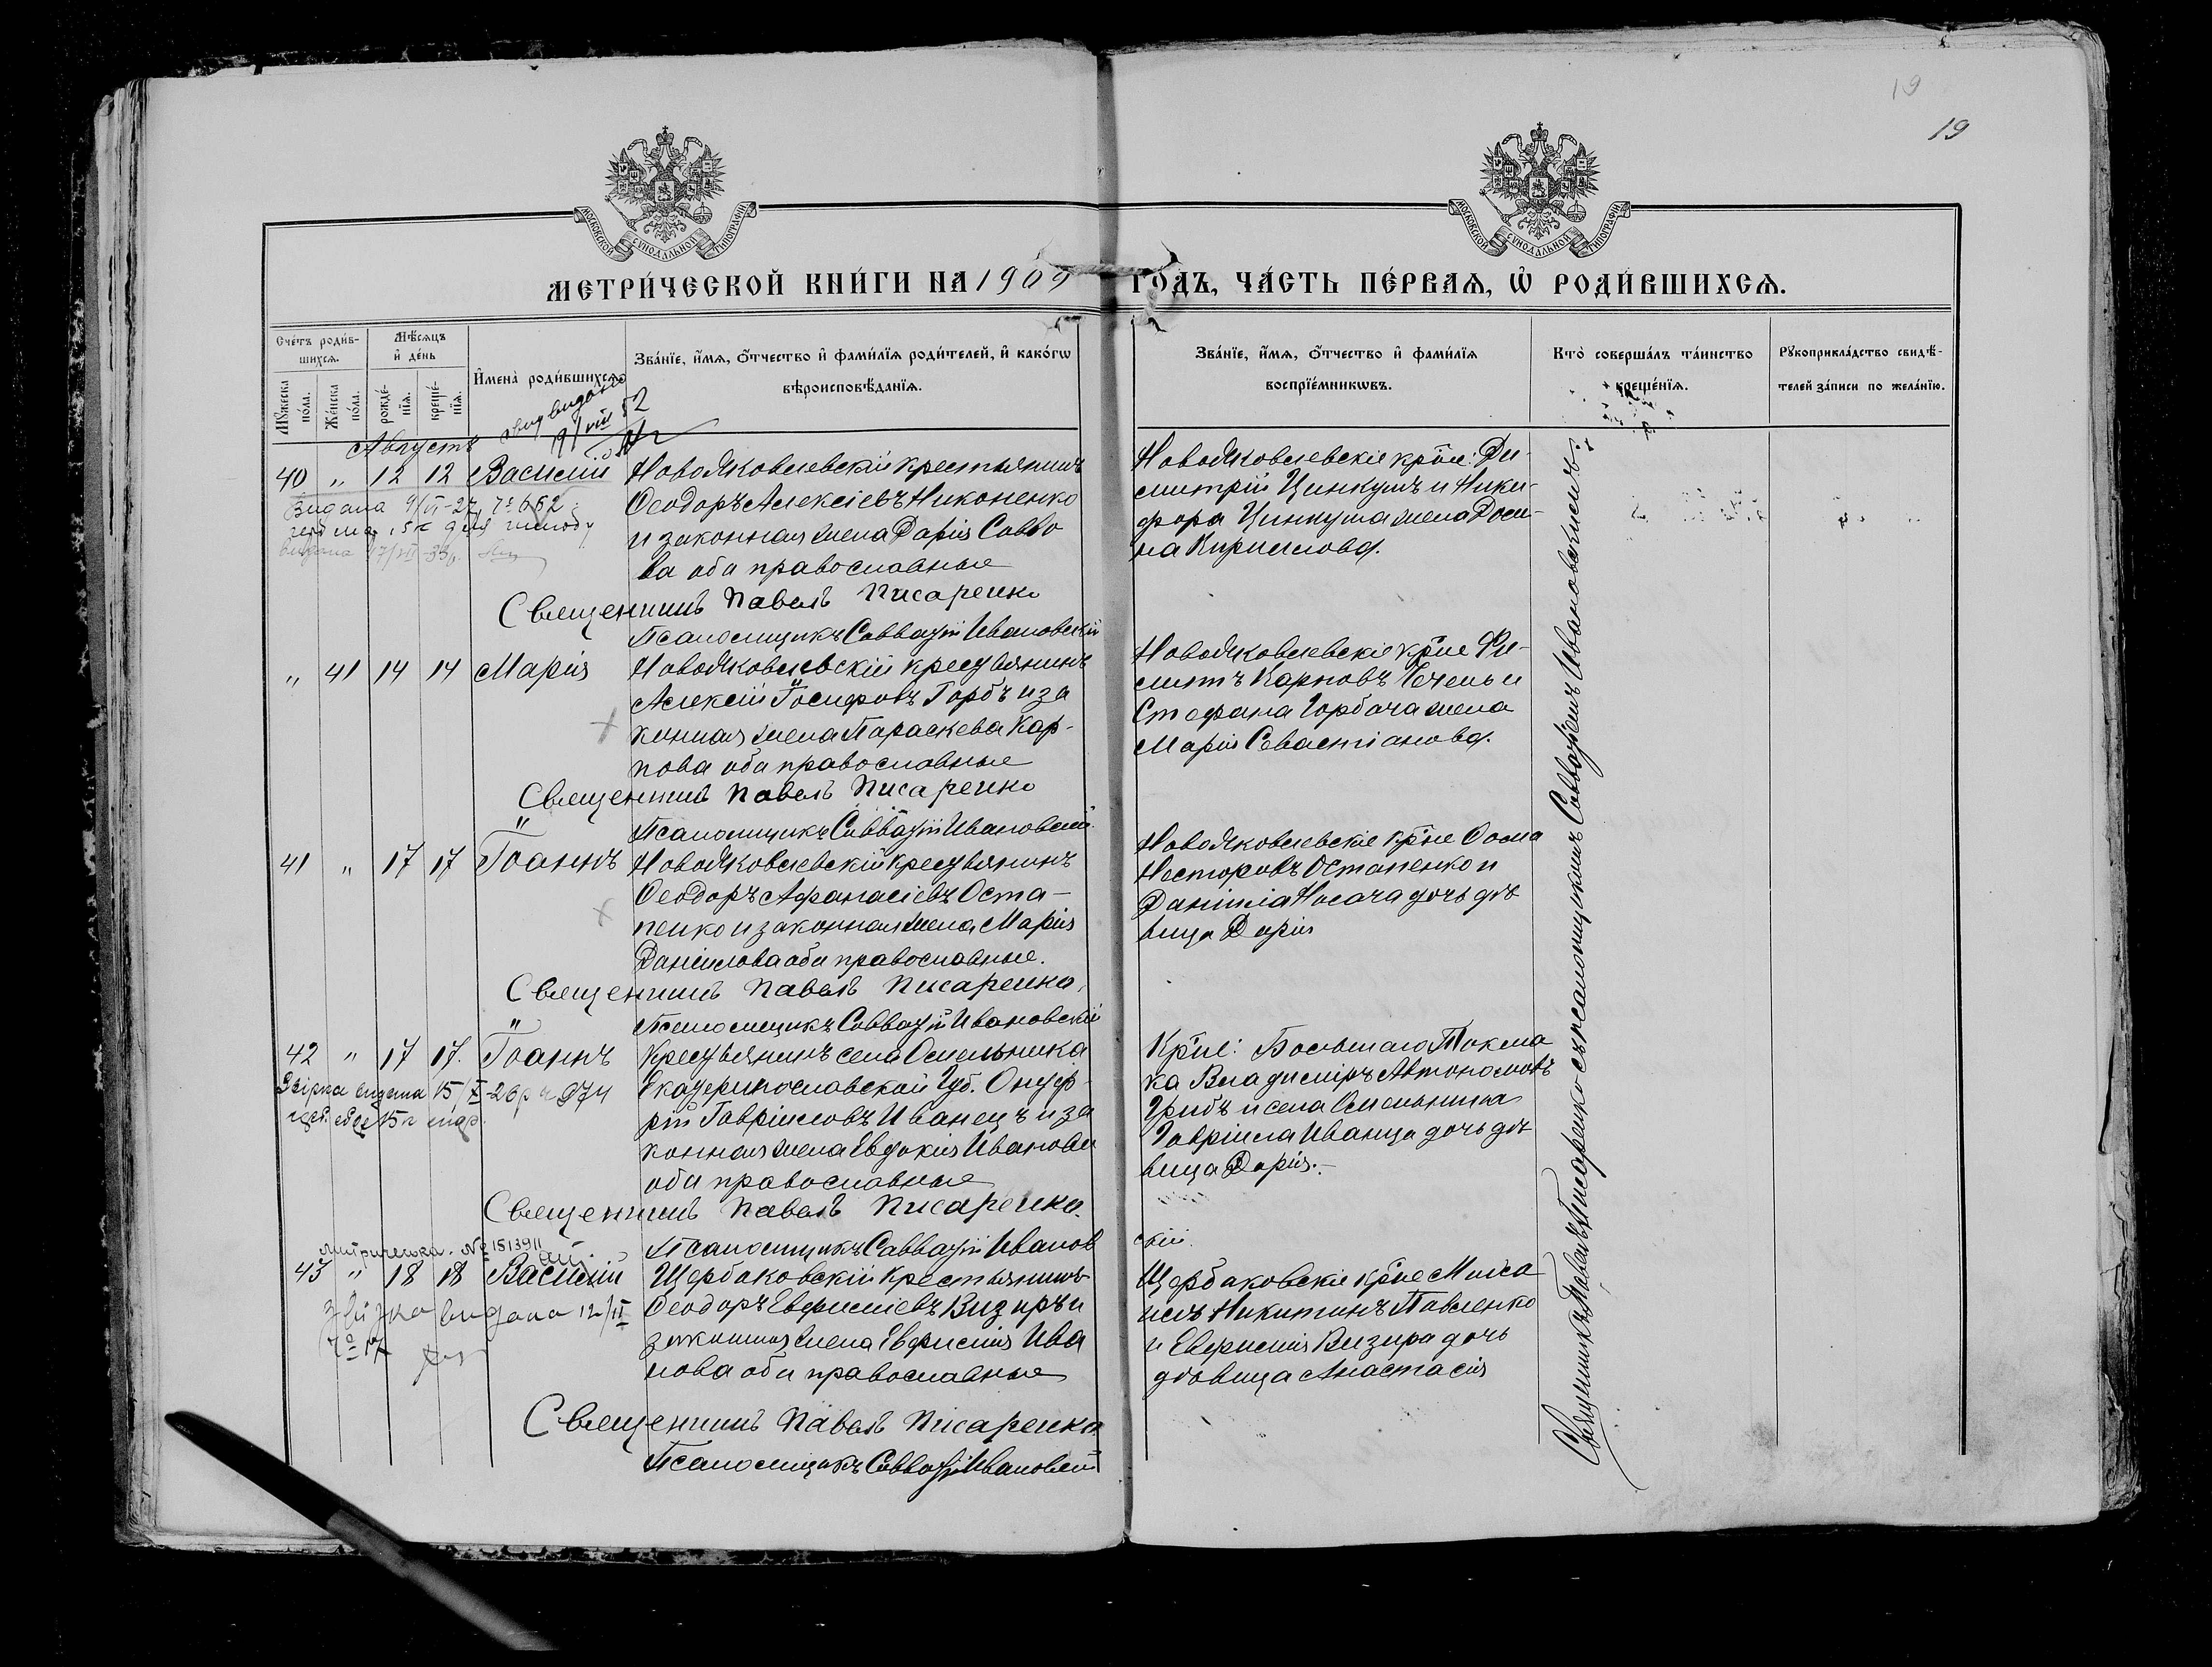 19
19
МОСКОВСКОЙ СУНОДАЛЬНОЙ ТИПОГРАФІИ
МОСКОВСКОЙ СУНОДАЛЬНОЙ ТИПОГРАФІИ
МЕТРИ́ЧЕСКОЙ КНИ́ГИ НА 1909 ГО́ДЪ, ЧА́СТЬ ПЕ́РВАѦ, Ѡ҆ РОДИ́ВШИХСѦ.
Сче́тъ роди́в-
шихсѧ.
Мꙋ́жеска
по́ла.
Же́нска
по́ла.
Мѣ́сѧцъ
и҆ де́нь
рожде́-
нїѧ.
креще́-
нїѧ.
И҆мена̀ роди́вшихсѧ.
Зва́нїе, и҆́мѧ, ѻ҆́тчество и҆ фами́лїѧ роди́телей, и҆ како́гѡ
вѣроисповѣ́данїѧ.
Зва́нїе, и҆́мѧ, ѻ҆́тчество и҆ фами́лїѧ
воспрїе́мникѡвъ.
Кто̀ соверша́лъ та́инство
креще́нїѧ.
Рꙋкоприкла́дство свидѣ́-
телей за́писи по жела́нїю.
Августъ
40 „ 12 12 Василій
НовоЯковлевскій крестьянинъ
Ѳеодоръ Алексіевъ Никоненко
и законная жена Дарія Савво
ва оба православные
НовоЯковлевскіе кр̃не: Ди-
митрій Цинкушъ и Ники-
фора Цинкуша жена Доми-
на Кириллова.
Видана 9/VI-27, 7º 652
видана 17/VII-33р.
Священникъ Павелъ Писаренко
Псаломщикъ Савватій Ивановскій
„ 41 14 14 Марія
НовоЯковлевскій крестьянинъ
Алексій Іосифовъ Горбъ и за
конная жена Параскева Кар-
пова оба православные
НовоЯковлевскіе кр̃не Фи-
липпъ Карповъ Чечень и
Стефана Горбача жена
Марія Севастіанова.
Священникъ Павелъ Писаренко
Псаломщикъ Савватій Ивановскій
41 „ 17 17 Іоаннъ
НовоЯковлевскій крестьянинъ
Ѳеодоръ Афанасіевъ Оста-
пенко и законная жена Марія
Даніилова оба православные.
НовоЯковлевскіе кр̃не Ѳома
Несторовъ Остапенко и
Даніила Носача дочь дѣ
вица Дарія
Священникъ Павелъ Писаренко.
Псаломщикъ Савватій Ивановскій
42 „ 17 17. Іоаннъ
Крестьянинъ села Омельника
Екатеринославской Губ. Онуф-
рій Гавріиловъ Иванецъ и за
конная жена Евдокія Иванова
оба православные
Кр̃не: Большого Токма
ка Владиміръ Автономовъ
Грибъ и села Омельника
Гавріила Иванца дочь дѣ
вица Дарія.
видана 15/X-26р
Священникъ Павелъ Писаренко.
Псаломщикъ Савватій Иванов
скій.
№ 1513911
43 „ 18 18 Василій
Щербаковскій крестьянинъ
Ѳеодоръ Евфиміевъ Визиръ и
законная жена Евфимія Ива
нова оба православные
Щербаковскіе кр̃не Миха
илъ Никитинъ Павленко
и Евфимія Визира дочь
дѣвица Анастасія
видана 12/II
Священникъ Павелъ Писаренко
Псаломщикъ Савватій Ивановскій
Священникъ Павелъ Писаренко съ псаломщикомъ Савватіемъ Ивановскимъ.